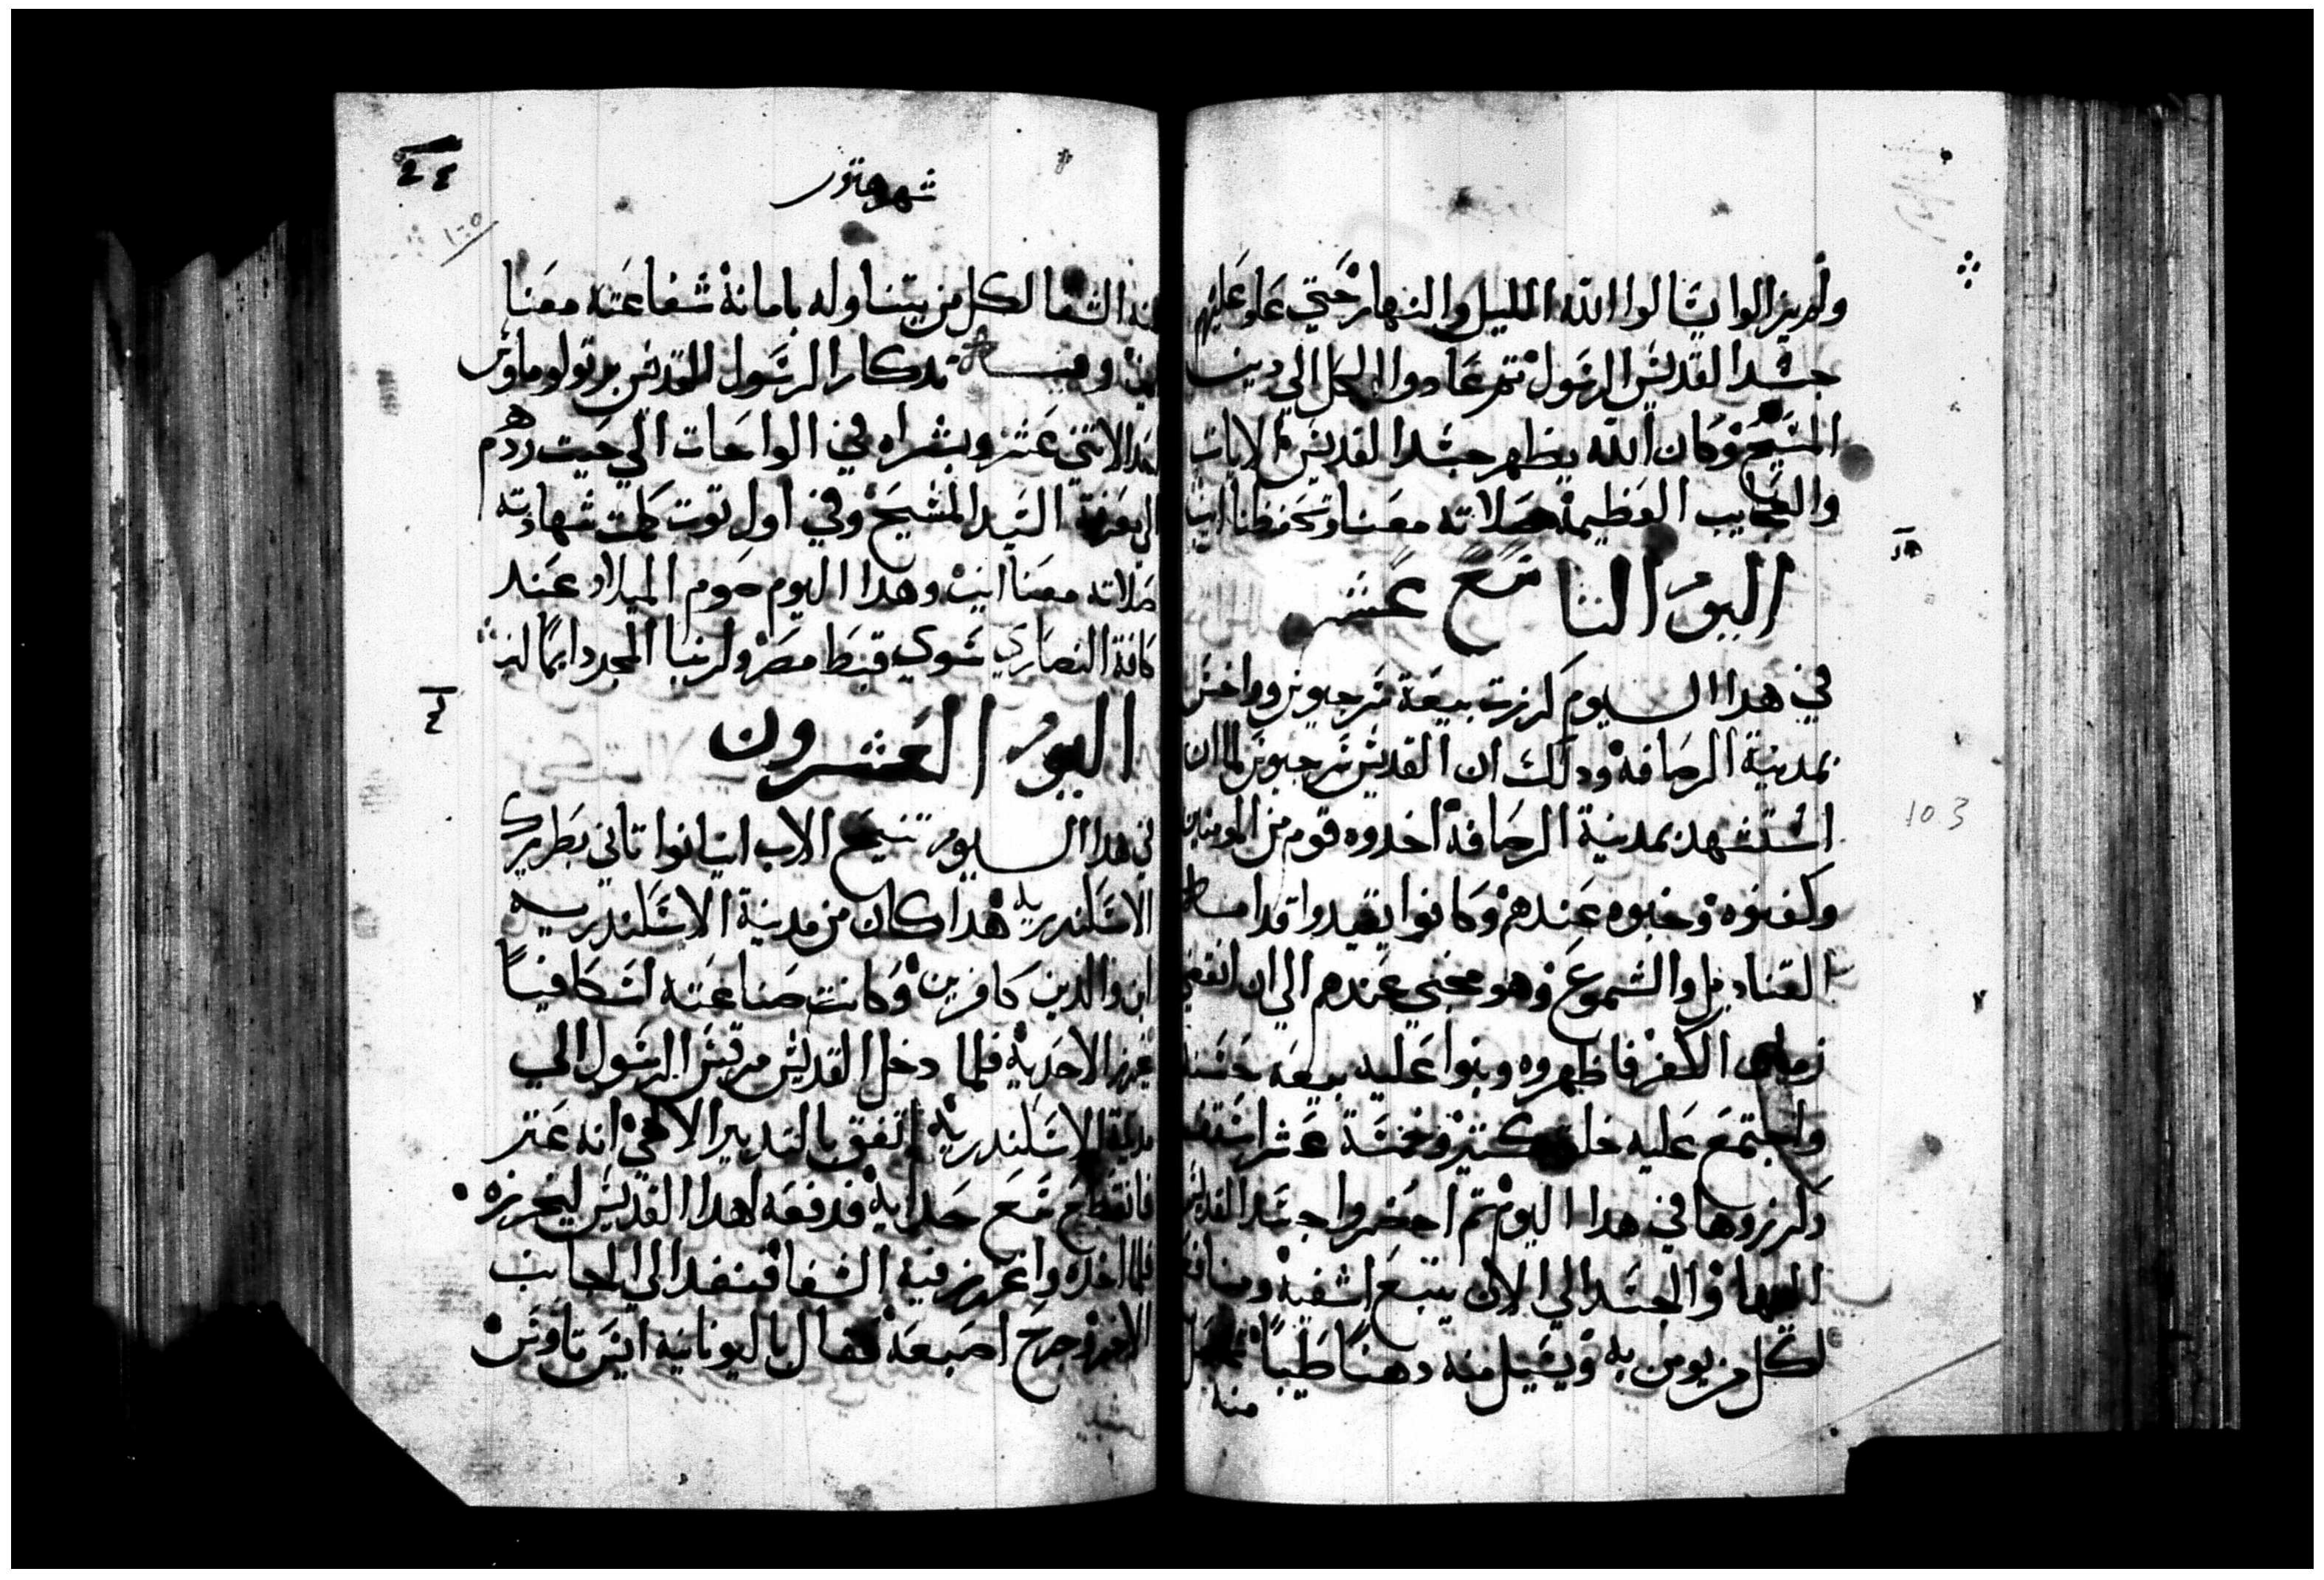 ولم يزالوا يسالوا الله الليل والنهار حتي عاد عليهم
جسد القديس الرسول تم عادوا الكل الي دين
المسيح وكان الله يظهر جسد القديس الايات
والعجايب العظيمة صلاته معنا وتحفظنا امين
اليوم التاسع عشر
في هدا اليوم كرزت بيعة سرجيوس وواخس
بمدينة الرصافة ودلك ان القديس سرجيوس لما ان
استشهد بمدينة الرصافة اخدوه قوم من المومنين
وكفنوه وخبوه عندهم وكانوا يقيدوا قدامه
القناديل والشموع وهو مخبي عندهم الي ان انقضي
زمان الكفر فاظهروه وبنوا عليه بيعة حسنة
واجتمع عليه خلق كتير وخمسة عشر اسقف
وكرزوها في هدا اليوم تم احضروا جسد القديس
اليها والجسد الي الان ينبع اشفية ومنافع
لكل من يومن به ويسيل منه دهنا طيبا
منه
شهر هتور
٢٤
١٠٥
منه الشفا لكل من يتناوله بامانة شفاعته معنا
امين وفيه تدكار الرسول المقدس برتولوماوس
احد الاتني عشر وبشراه في الواحات الي حيت ردهم
الي معرفة السيد المسيح وفي اول توت كملت شهادته
صلاته معنا امين وهدا اليوم صوم الميلاد عند
كافة النصاري سوي قبط مصر ولربنا المجد دايما امين
اليوم العشرون
في هدا اليوم تنيح الاب انيانوا تاني بطريرك
الاسكندرية هدا كان من مدينة الاسكندرية
ابن والدين كافرين وكانت صناعته اسكافيا
يخرز الاحدية فلما دخل القديس مرقس الرسول الي
مدينة الاسكندرية اتفق بالتدبير الالاهي انه عتر
فانقطع سع حدايه فدفعه لهدا القديس ليخرزه
فلما اخده واغرز فيه الشفا فنفد الي الجانب
الاخر وجرح اصبعه فقال باليونانية ايس تاوس
103